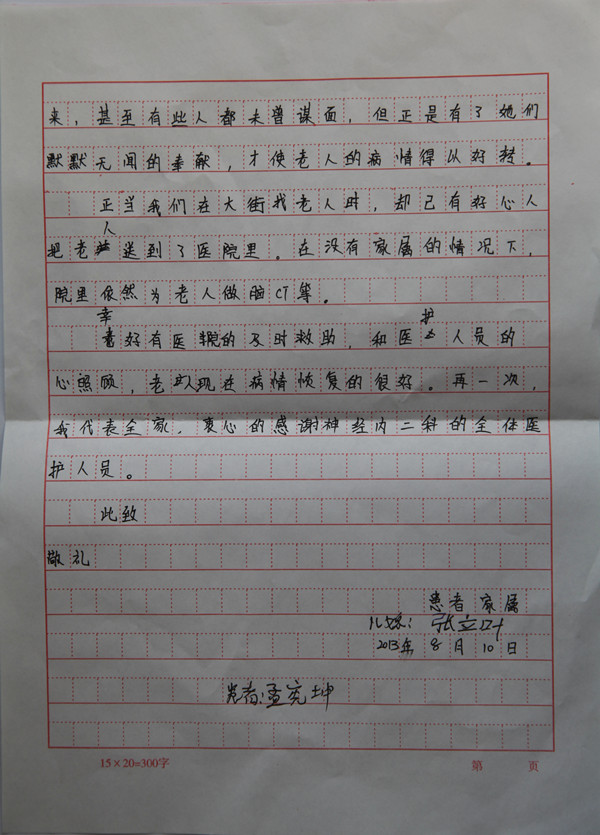 来，甚至有些人都未曾谋面，但正是有了她们
默默无闻的奉献，才使老人的病情得以好转。
正当我们在大街找老人时，却已有好心人
把老人送到了医院里。在没有家属的情况下，
院里依然为老人做脑CT等。
幸好有医院的及时救助，和医护人员的
心照顾，老人现在病情恢复的很好。再一次，
我代表全家，衷心的感谢神经内二科的全体医
护人员。
此致
敬礼
患者家属
儿媳：张立
2013年8月10日
患者：孟宪坤
15×20=300字
第 页